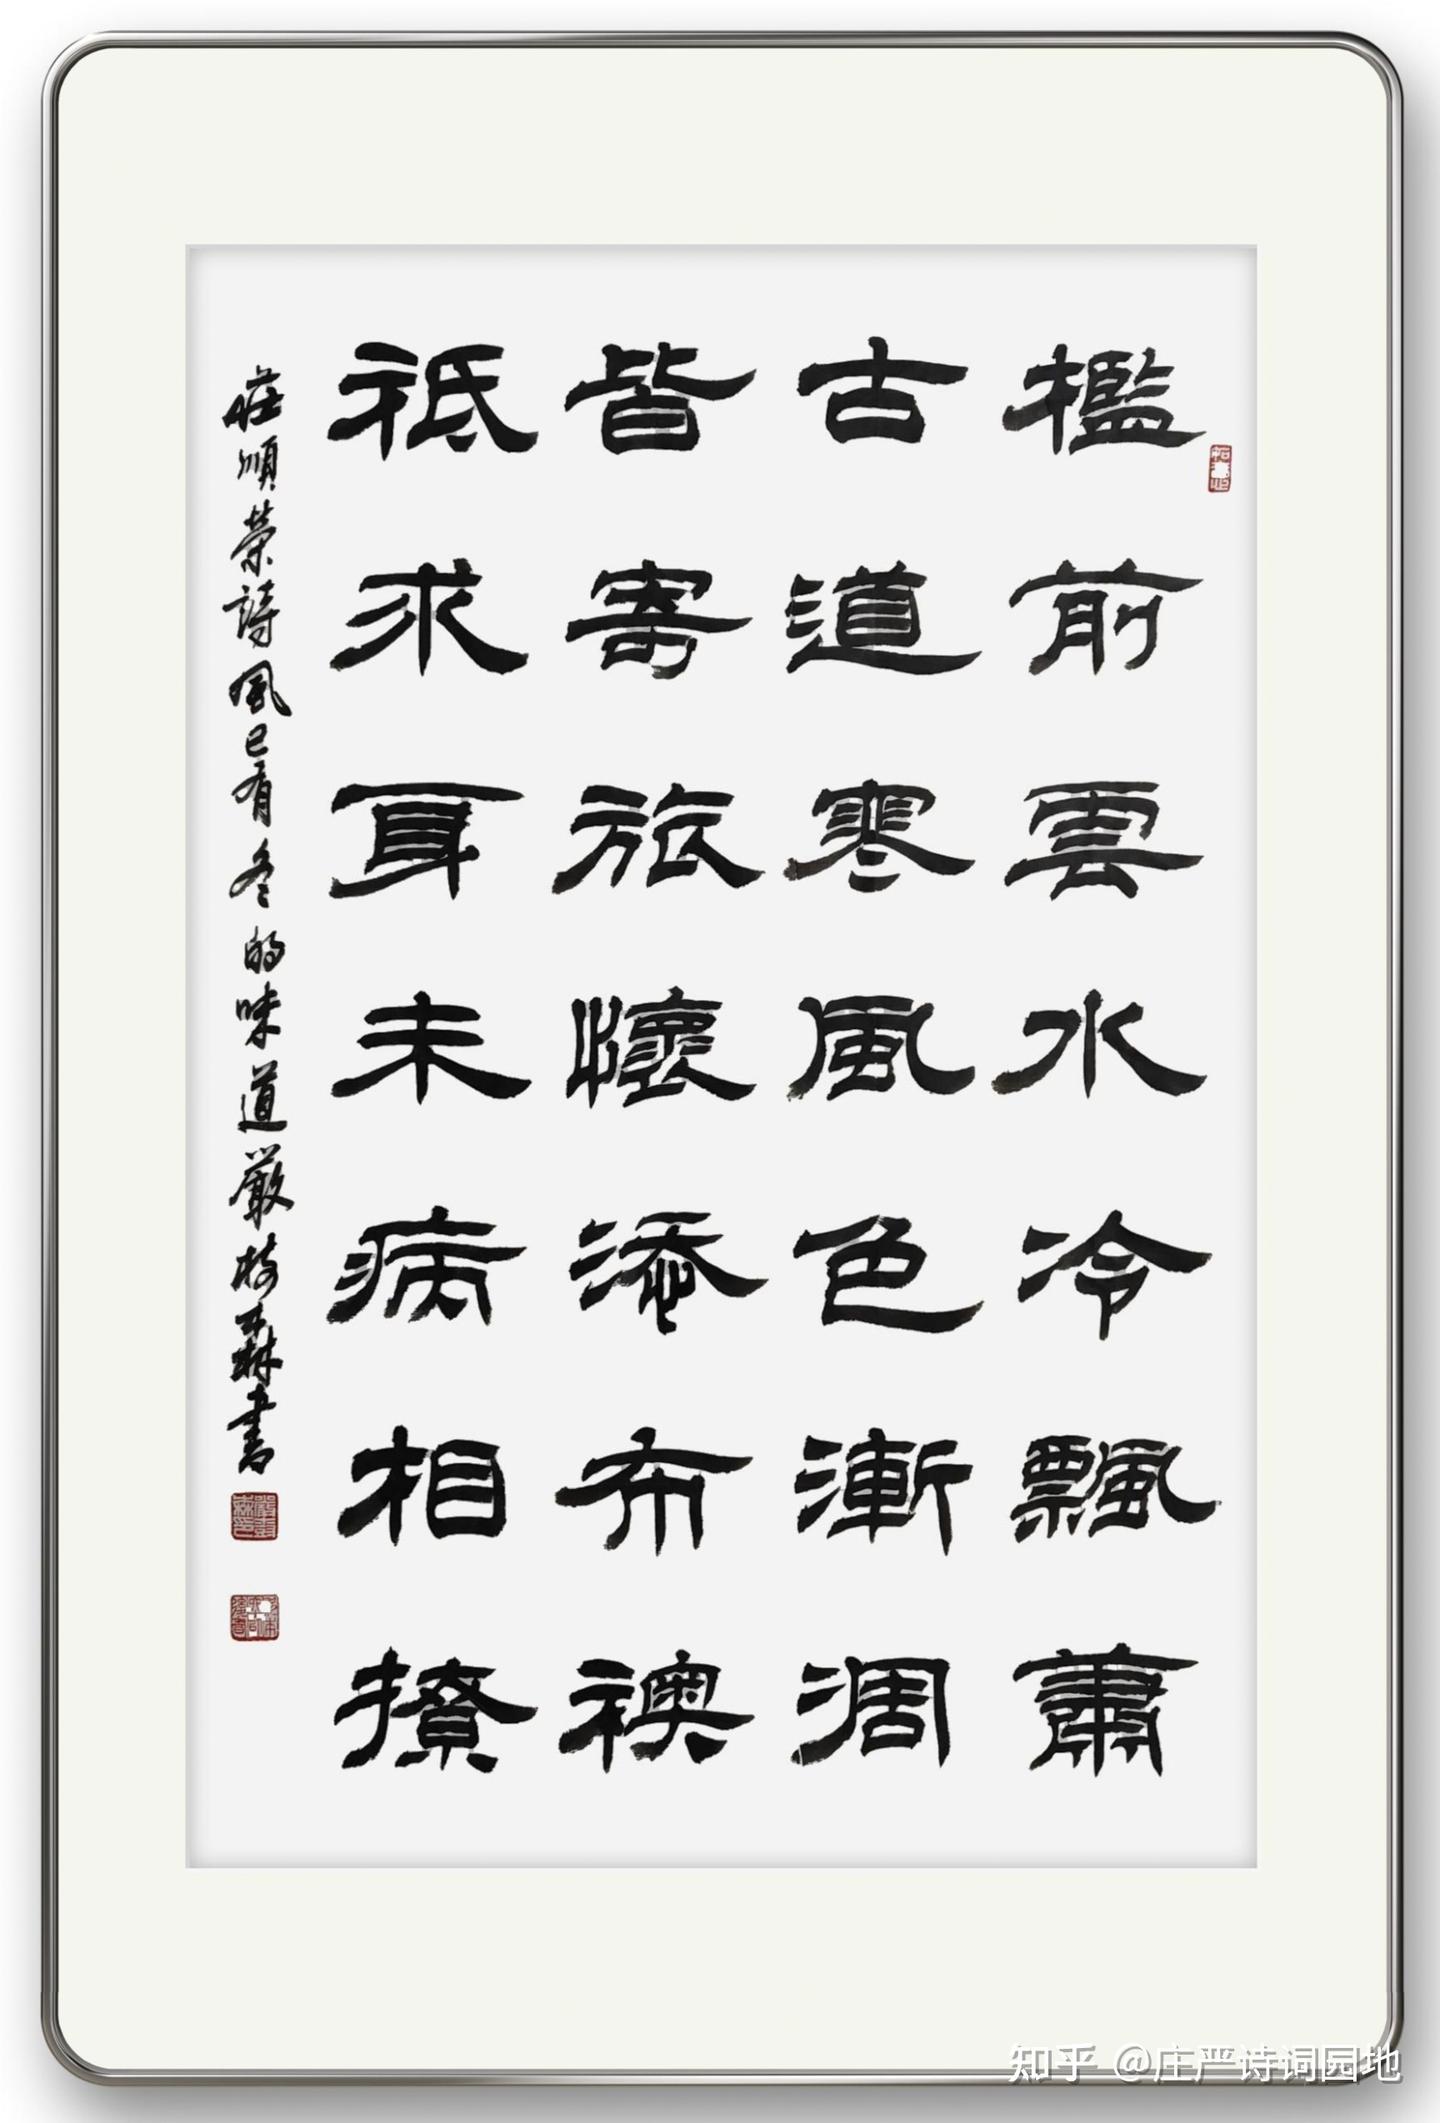 檻前雲水冷飄蕭
古道寒風色漸凋
皆寄旅懷添布襖
祗求耳未病相撩
莊順榮詩風已有冬的味道嚴樹森書
知乎 @庄严诗词园地